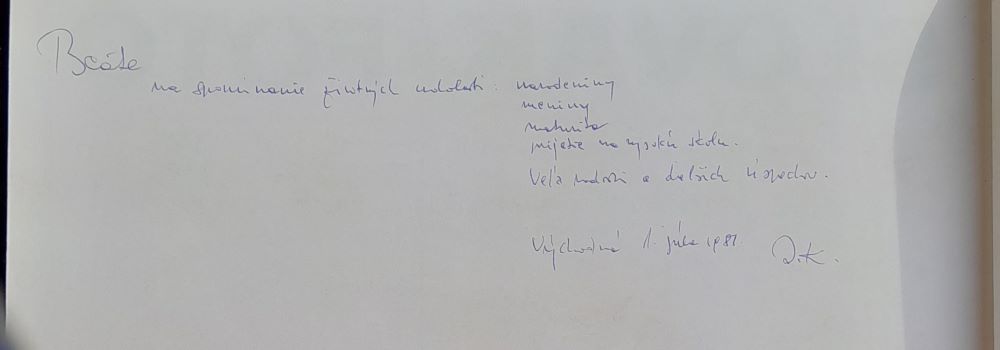 Beáte
na spomínanie životných udalostí: narodeniny
meniny
maturita
prijatie na vysokú školu.
Veľa radosti a ďalších úspechov.
Východná 1. júla 1981.
D.K.